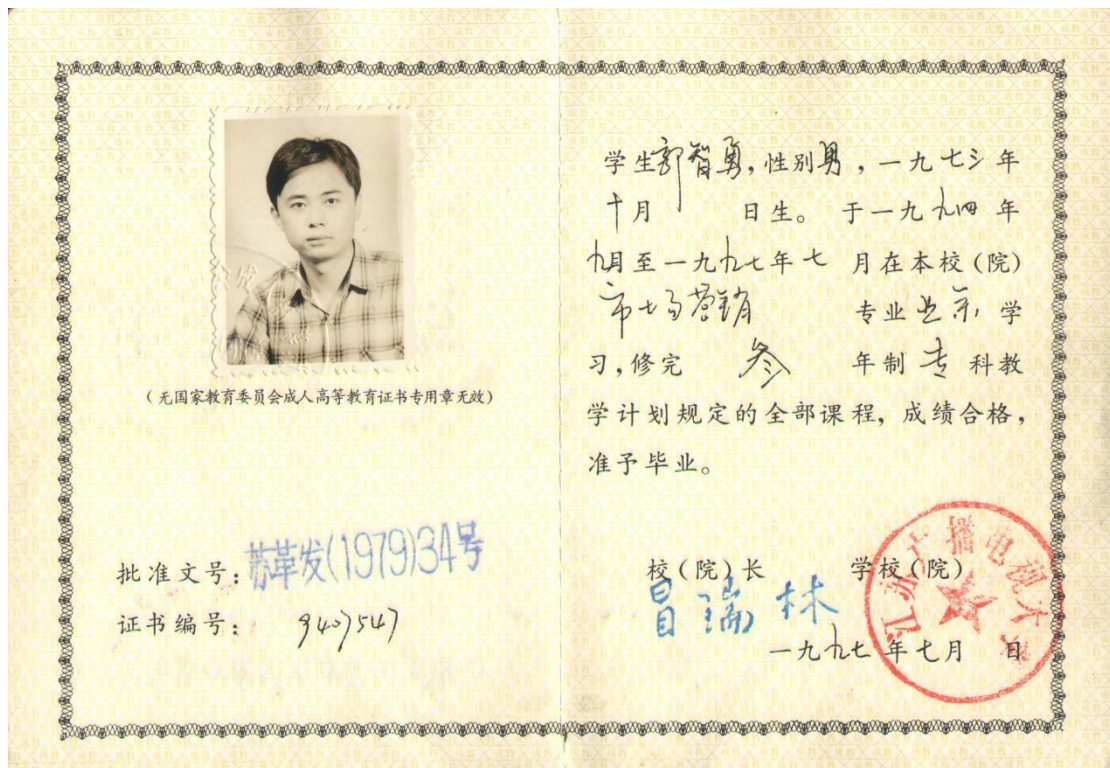 (无国家教育委员会成人高等教育证书专用章无效)
批准文号：苏革发(1979)34号
证书编号：9407547
学生郭智勇，性别男，一九七三年
十月 日生。于一九九四年
九月至一九九七年七 月在本校(院)
市场营销 专业业余学
习，修完 叁 年制专科教
学计划规定的全部课程，成绩合格，
准予毕业。
校(院)长 学校(院)
冒瑞林
江苏广播电视大学
一九九七年七月 日